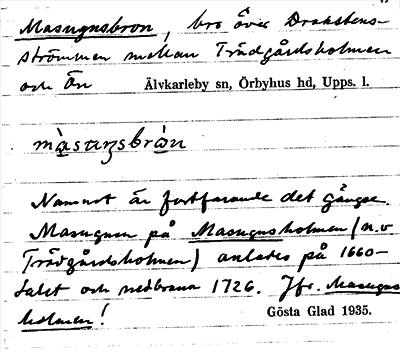 Masugnsbron, bro över Drakstens-
strömmen mellan Trädgårdsholmen
och Ön Älvkarleby sn, Örbyhus hd, Upps. l.
màsuŋsbròn
Namnet är fortfarande det gängse.
Masugnen på Masugnsholmen (n.v
Trädgårdsholmen) anlades på 1660-
talet och nedbrann 1726. Jfr. Masugns
holmen!
Gösta Glad 1935.